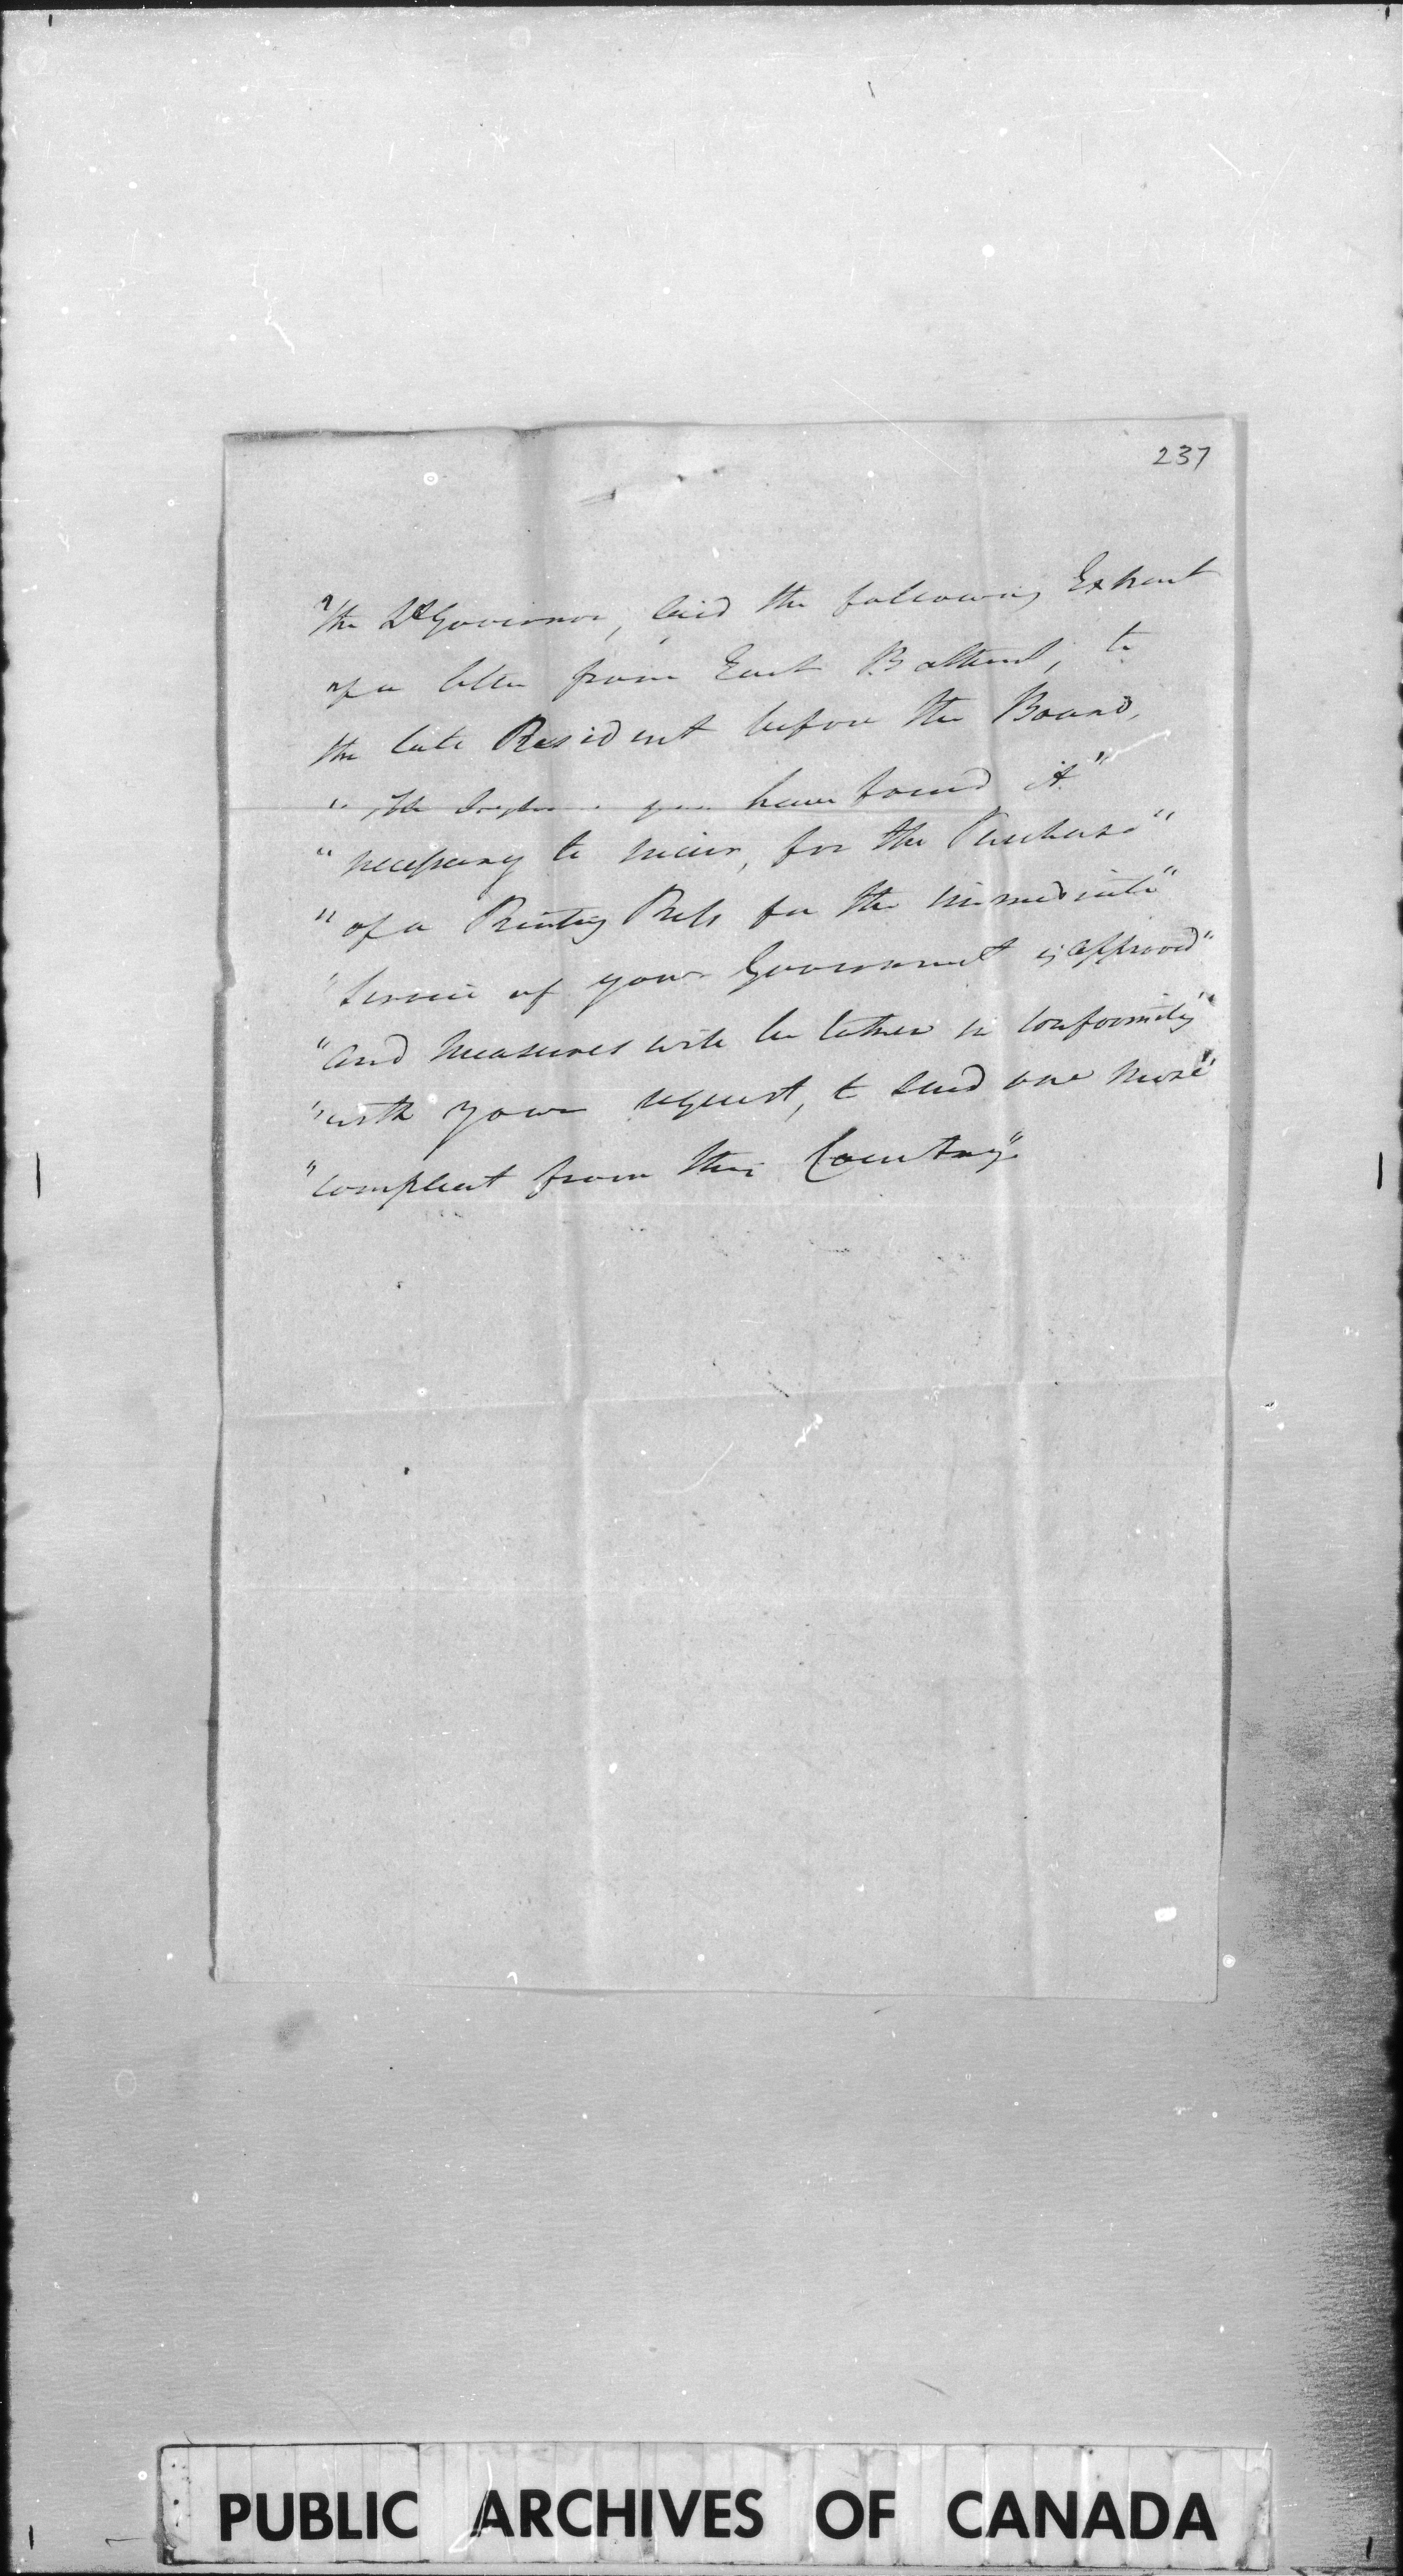 237
The Lt Governor, laid the following Extract
of a letter from Earl Bathurst, to
the late President before the Board,
" The you have found it"
" necessary to incur, for the Purchase"
" of a Printing Press for the immediate"
" Service of your Government is approved"
" and measures will be taken in conformity"
" with your request, to send one more"
" compleat from this Country".
PUBLIC ARCHIVES OF CANADA